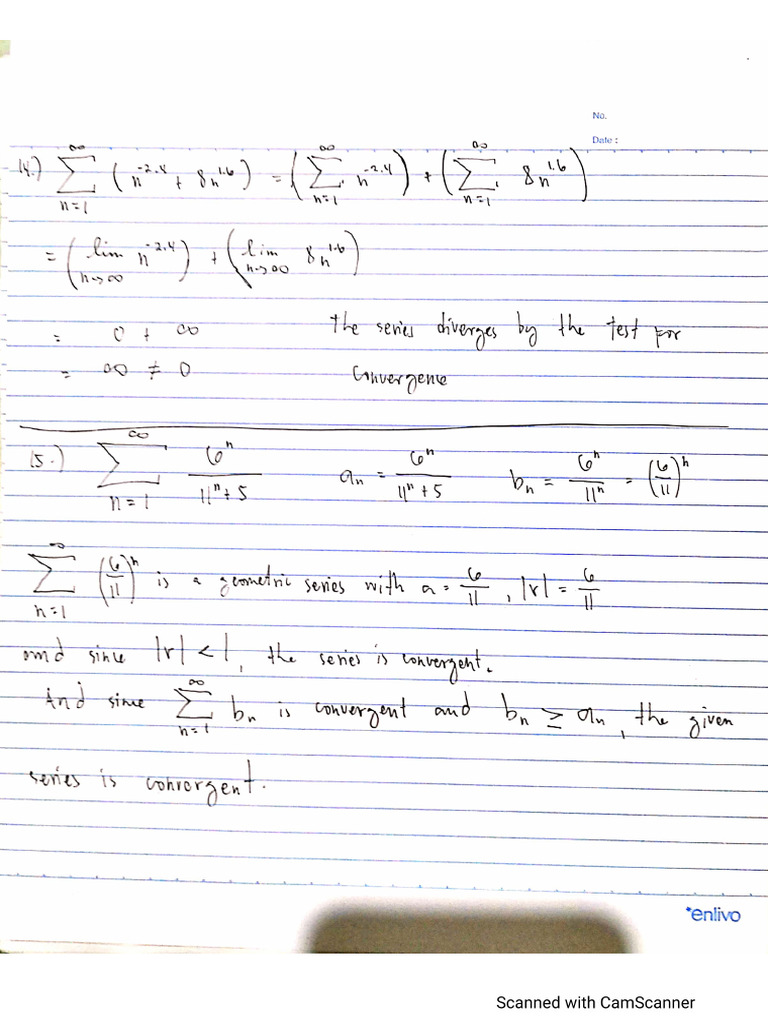 No.
Date :
14.) ∞ ∑ n=1 (n^-2.4 + 8n^1.6) = (∞ ∑ n=1 n^-2.4) + (∞ ∑ n=1 8n^1.6)
= (lim n→∞ n^-2.4) + (lim n→∞ 8n^1.6)
= 0 + ∞ The series diverges by the test for
= ∞ ≠ 0 convergence
15.) ∞ ∑ n=1 6^n / 11^n + 5 a_n = 6^n / 11^n + 5 b_n = 6^n / 11^n = (6/11)^n
∞ ∑ n=1 (6/11)^n is a geometric series with a = 6/11, |r| = 6/11
and since |r| < 1, the series is convergent.
And since ∞ ∑ n=1 b_n is convergent and b_n ≥ a_n, the given
series is convergent.
enlivo
Scanned with CamScanner